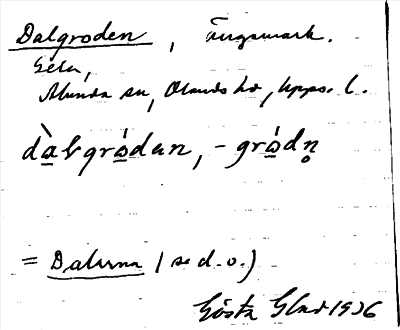 Dalgroden, Ängsmark.
Alunda sn, Olands hd, Upps. l.
dàlgródan, -gródn̥
= Dalarna (se d. o.)
Gösta Glad 1936